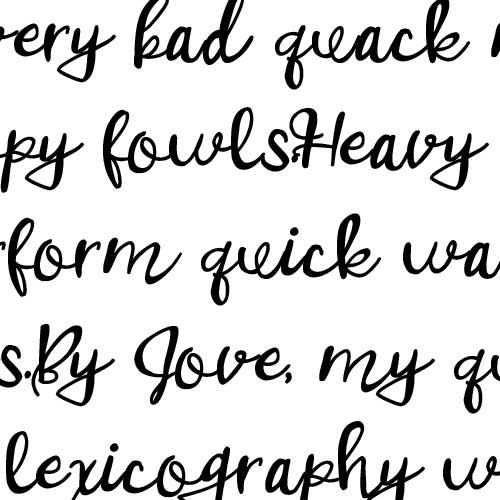 very bad quack
py fowls.Heavy
rform quick wa
s.By Jove, my qu
lexicography w